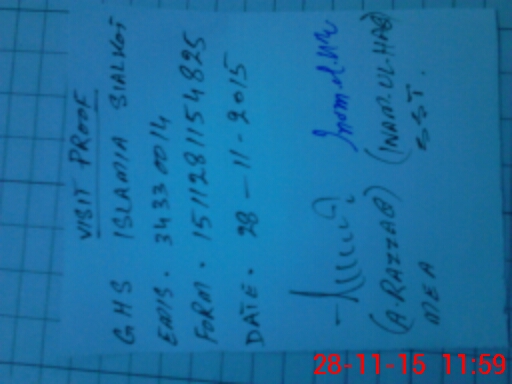 VISIT PROOF
GHS ISLAMIA SIALKOT
EMIS. 34330014
FORM. 1511281154825
DATE. 28-11-2015
Inam.ul.Haq
(A.RAZZAQ) (INAM.UL.HAQ)
MEA SST.
28-11-15 11:59